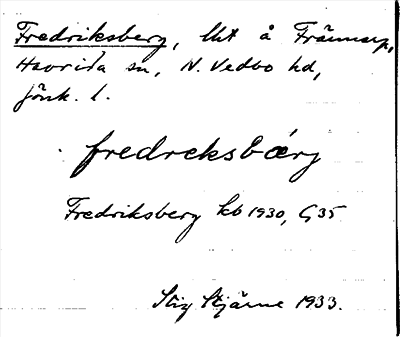 Fredriksberg, lht å Främmarp,
Haurida sn, N. Vedbo hd,
Jönk. l.
fredreksbærj
Fredriksberg kb 1930, G35
Stig Stjärne 1933.